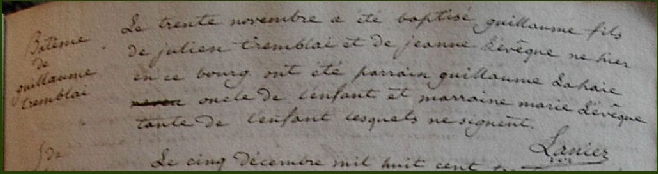 Bâteme
de
guillaume
tremblai
Le trente novembre a été baptisé guillaume fils
de julien tremblai et de jeanne Levêque né hier
en ce bourg ont été parrain guillaume Lahaie
oncle de l'enfant et marraine marie Levêque
tante de l'enfant lesquels ne signent.
Lanier
Le cinq décembre mil huit cent